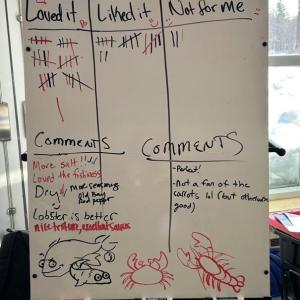 Loved it
Liked it
Not for me
Comments
More salt!!
Loved the fishiness
Dry
More seasoning
Old Bay
Red pepper
Lobster is better
nice texture, excellent sauces
COMMENTS
- Perfect!
- Not a fan of the
carrots lol (but otherwise
good)